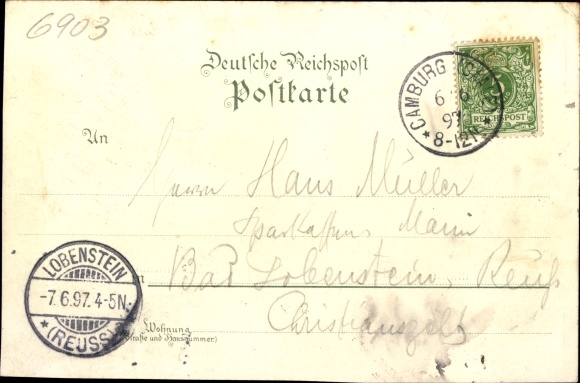 6903
Deutsche Reichspost
Postkarte
CAMBURG
6 6
97
8-12V
REICHSPOST
An
Herrn Hans Müller
Sparkassen
Bad Lobenstein, Reuß
LOBENSTEIN
-7.6.97. 4-5N.
(REUSS)
Wohnung
(Straße und Hausnummer)